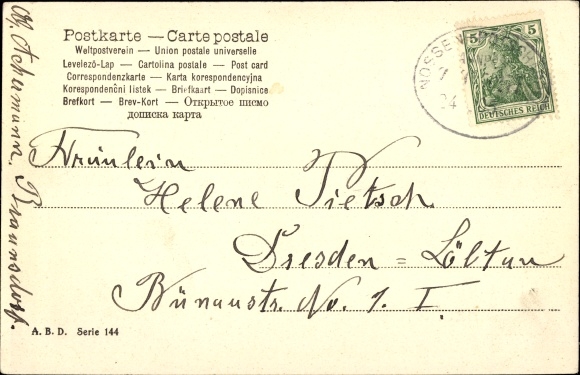 Postkarte — Carte postale
Weltpostverein — Union postale universelle
Levelező-Lap — Cartolina postale — Post card
Correspondenzkarte — Karta korespondencyjna
Korespondenční lístek — Briefkaart — Dopisnice
Brefkort — Brev-Kort — Открытое письмо
дописка карта
5 5
DEUTSCHES REICH
NOSSE
24
Fräulein
Helene Pietsch
Dresden = Löltau
Bünaustr. No. 1. I.
Abs. Achermann. Braunsdorf.
A. B. D. Serie 144